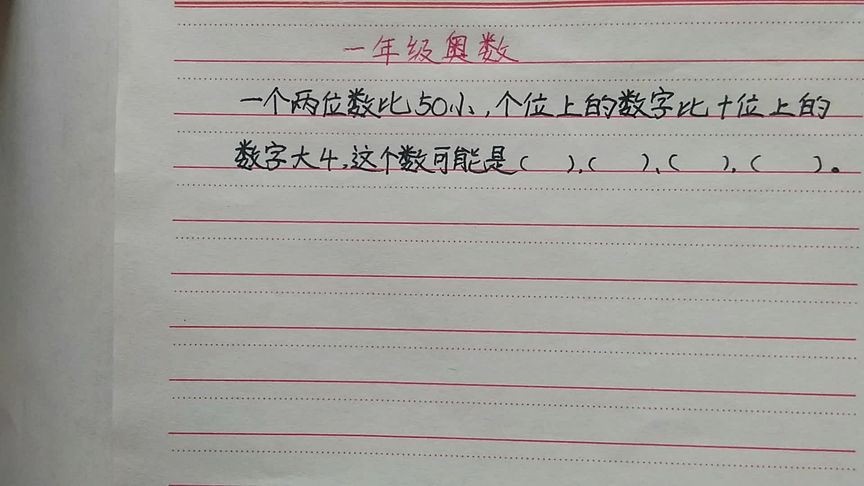 一年级奥数
一个两位数比50小,个位上的数字比十位上的
数字大4,这个数可能是( )、( )、( )、( )。